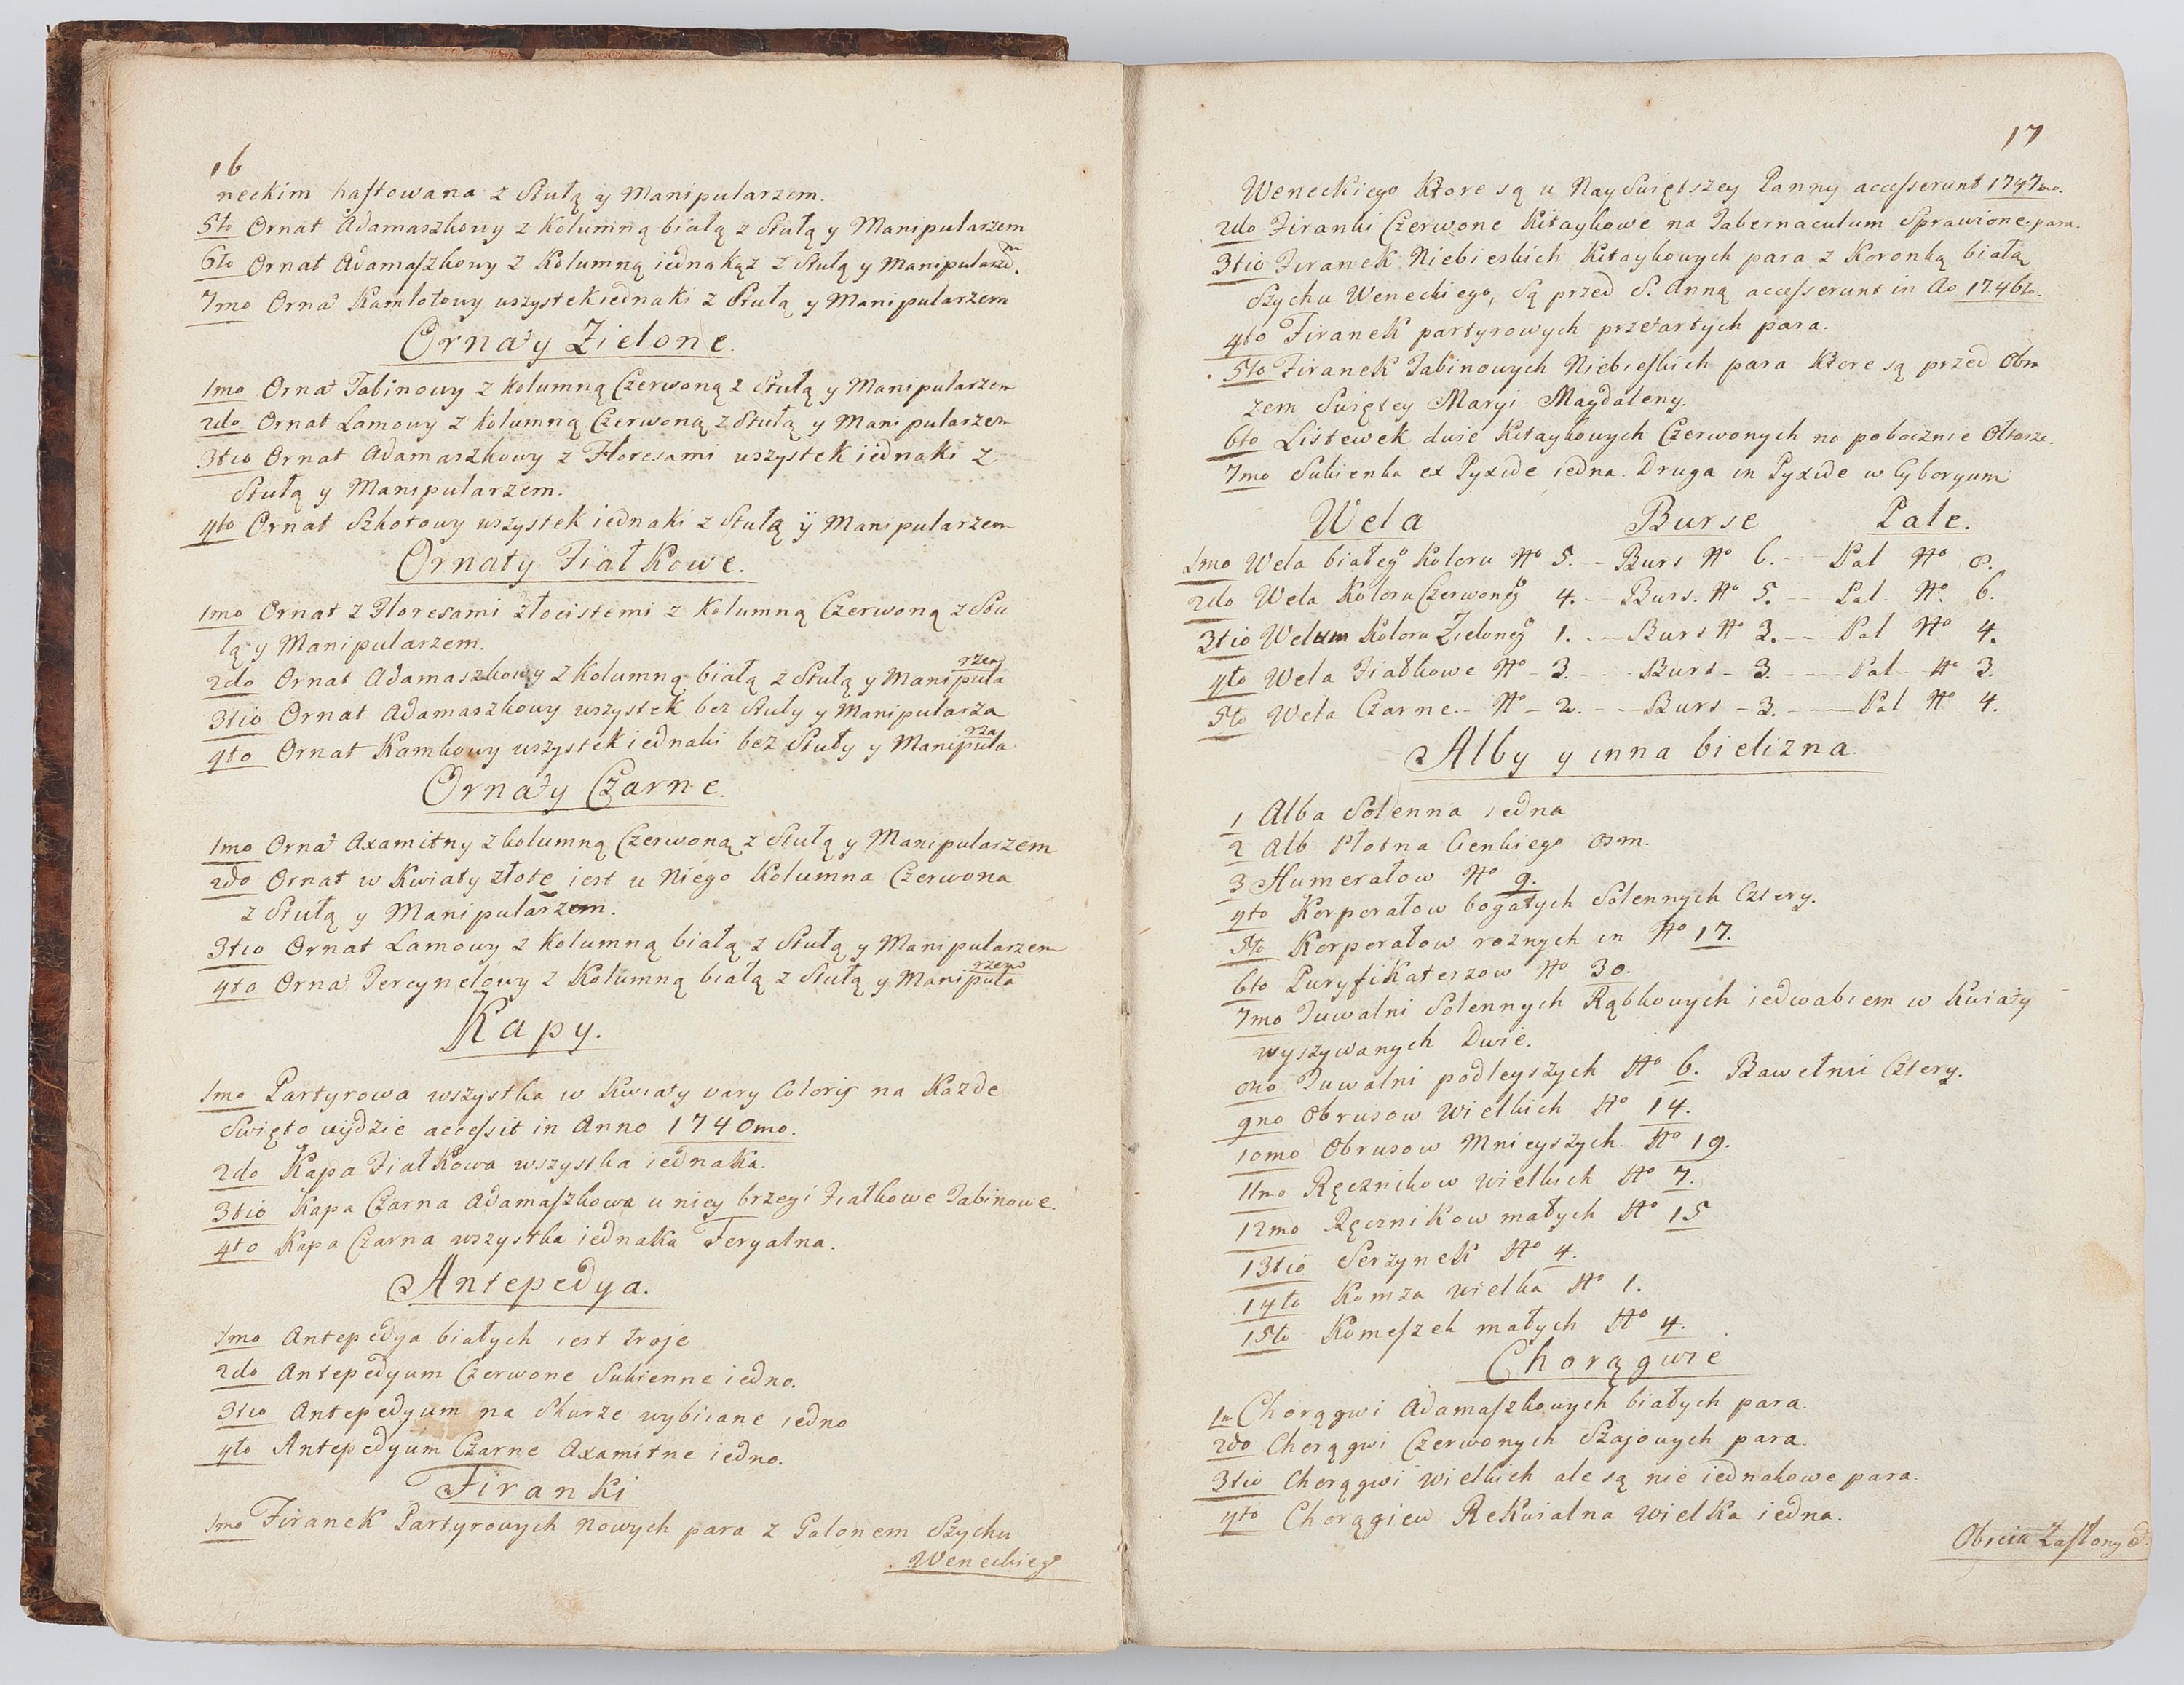 16
neckim haftowana z Stułą y Manipularzem.
5to Ornat Adamaszkowy z Kolumną białą z Stułą y Manipularzem
6to Ornat Adamaszkowy z Kolumną iednakąz z Stułą y Manipularz.
7mo Ornat Kamlotowy wszystek iednaki z Stułą y Manipularzem
Ornaty Zielone.
1mo Ornat Tabinowy z kolumną Czerwoną z Stułą y Manipularzem
2do Ornat Lamowy z kolumną Czerwoną z Stułą y Manipularzem
3tio Ornat Adamaszkowy z Floresami wszystek iednaki z
Stułą y Manipularzem.
4to Ornat Szkotowy wszystek iednaki z Stułą ÿ Manipularzem
Ornaty Fiałkowe.
1mo Ornat z Floresami złocistemi z Kolumną Czerwoną z Stu
łą y Manipularzem.
2do Ornat Adamaszkowy z kolumną białą z Stułą y Manipularzem
3tio Ornat Adamaszkowy wszystek bez Stuły y Manipularza
4to Ornat Kamkowy wszystek iednaki bez Stuły y Manipularza
Ornaty Czarne.
1mo Ornat Axamitny z kolumną Czerwoną z Stułą y Manipularzem
2do Ornat w Kwiaty złote iest u Niego Kolumna Czerwona
z Stułą y Manipularzem.
3tio Ornat Lamowy z Kolumną białą z Stułą y Manipularzem
4to Ornat Tercynelowy z Kolumną białą z Stułą y Manipularzem
Kapy.
1mo Partyrowa wszystka w Kwiaty vary Coloris na Kazde
Swięto uÿdzie accessit in Anno 1740mo.
2do Kapa Fiałkowa wszystka iednaka.
3tio Kapa Czarna Adamaszkowa u niey brzegi Fiałkowe Tabinowe.
4to Kapa Czarna wszystka iednaka Feryalna.
Antepedya.
1mo Antepedya białych iest troje
2do Antepedyum Czerwone Sukienne iedno.
3tio Antepedyum na Skurze wybiiane iedno
4to Antepedyum Czarne Axamitne iedno.
Firanki
1mo Firanek Partyrowych nowych para z Galonem Szychu
Weneckieg°
17
Weneckiego Ktore są u Nayswiętszey Panny accesserunt 1747mo.
2do Firanki Czerwone Kitaykowe na Tabernaculum Sprawione para.
3tio Firanek Niebieskich Kitaykowych para z Koronką białą
Szychu Weneckiego, Są przed S. Anną accesserunt in Ao 1746to.
4to Firanek partyrowych przetartych para.
5to Firanek Tabinowych Niebieskich para Ktore są przed Obra
zem Swiętey Maryi Magdaleny.
6to Listewek dwie Kitaykowych Czerwonych na pobocznie Ołtarze.
7mo Sukienka ex Pyxide iedna. Druga in Pyxide w Cyboryum
Wela Burse Pale.
1mo Wela białeg° Koloru No 5. - Burs No 6. - Pal No 8.
2do Wela Koloru Czerwoneg° 4. - Burs. No 5. - Pal No. 6.
3tio Welum Koloru Zieloneg° 1. - Burs No 3. - Pal No 4.
4to Wela Fiałkowe No 3. - Burs - 3. - Pal No 3.
5to Wela Czarne. - No - 2. - Burs - 3. - Pal No 4.
Alby y inna bielizna.
1 Alba Solenna iedna
2 Alb Płotna Cienkiego osm.
3 Humerałow No 9.
4to Korporałow bogatych Solennych Cztery.
5to Korporałow roznych in No 17.
6to Puryfikaterzow No 30.
7mo Tuwalni Solennych Rąbkowych iedwabiem w Kwiaty
wyszywanych Dwie.
8vo Tuwalni podleyszych No 6. Bawełnii Cztery.
9no Obrusow Wielkich No 14.
10mo Obrusow Mnieyszych No 19.
11mo Ręcznikow wielkich No 7.
12mo Ręcznikow małych No 15
13tio Serzynek No 4.
14to Komza wielka No 1.
15to Komeszek małych No 4.
Chorągwie
1mo Chorągwi Adamaszkowych białych para.
2do Chorągwi Czerwonych Szajowych para.
3tio Chorągwi wielkich ale są nie iednakowe para.
4to Chorągiew Rekwialna wielka iedna.
Obicia Zasłony